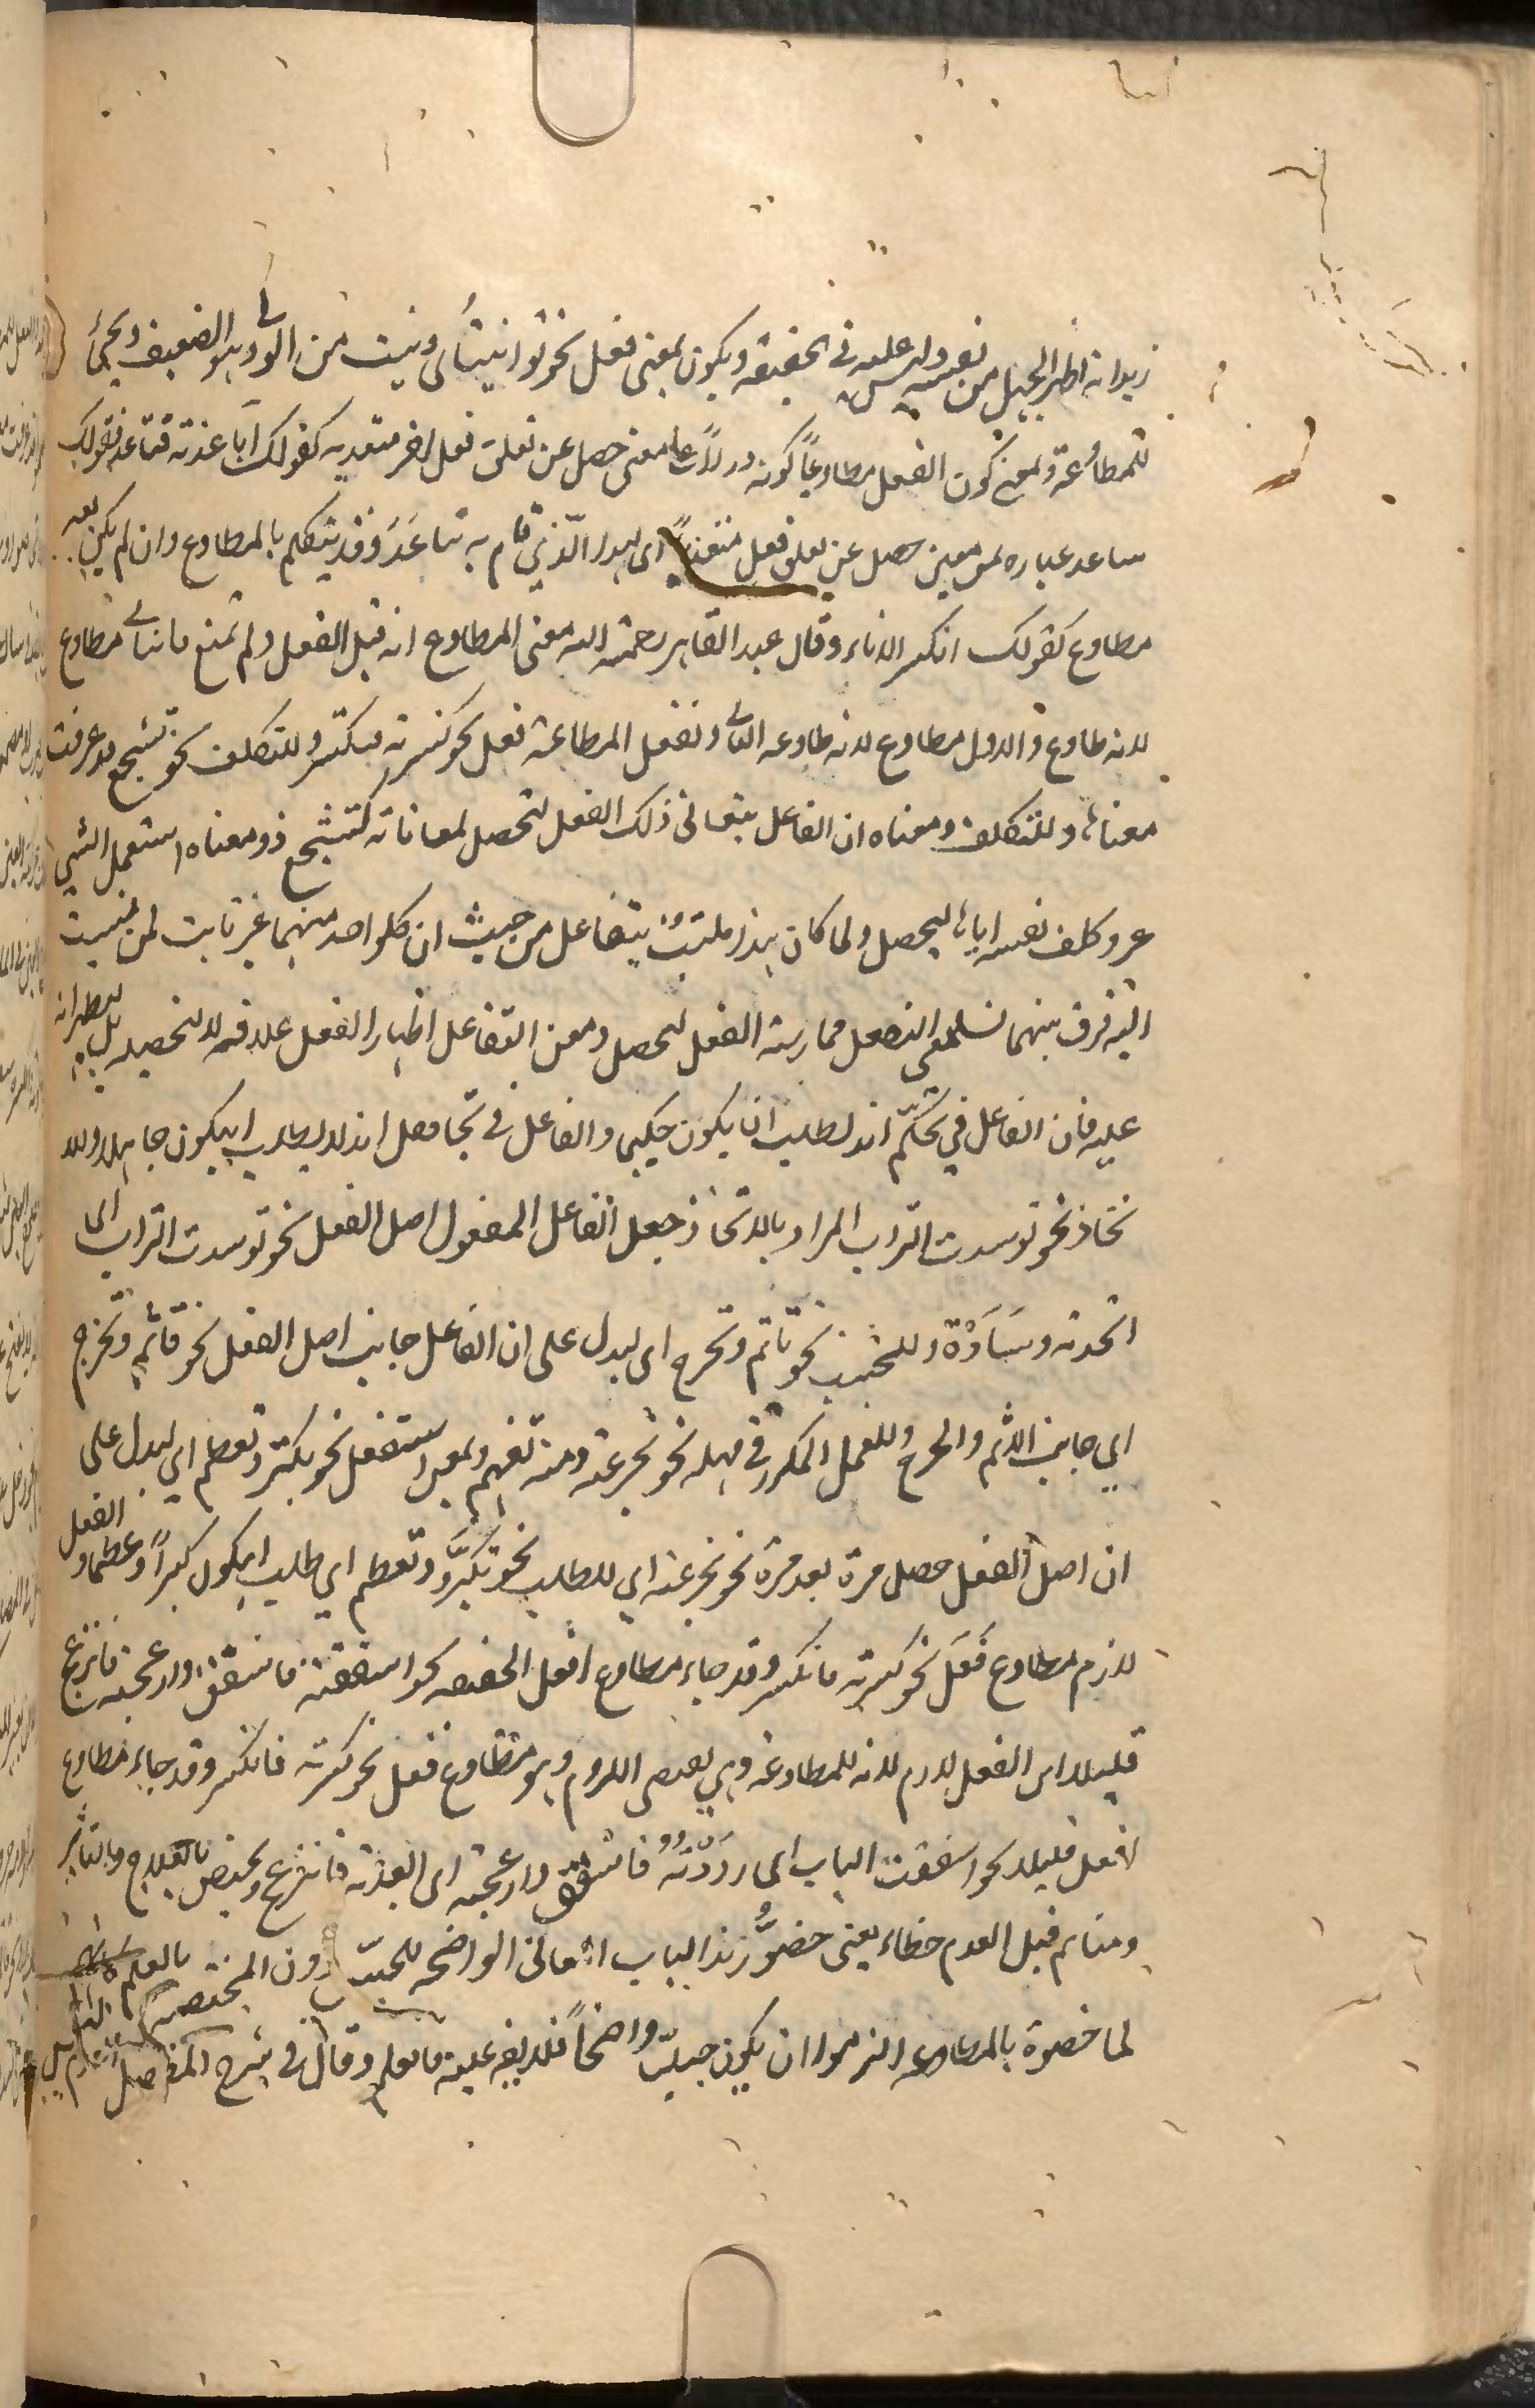 زيدا انه اظهر الجهل من نفسه وليس عليه في الحقيقة ويكون بمعنى فعل نحو توانيت اى ونيت من الونى وهو الضعيف ويجئ
للمطاوعة ومعنى كون الفعل مطاوعاً كونه دالاً على معنى حصل عن تعلق فعل اخر متعد به كقولك باعدته فتباعد فقولك
تباعد عبارة عن معنى حصل عن تعلق فعل متعدٍ اى بهذا الّذي قام به تباعَدَ وقد يتكلم بالمطاوع وان لم يكن معه
مطاوع كقولك انكسر الاناء وقال عبد القاهر رحمة الله معنى المطاوع انه قبل الفعل ولم تمنع فالثانى مطاوع
لانه طاوع والاول مطاوع لانه طاوعه الثانى وتفعل لمطاوعة فعل نحو كسرته فتكسر وللتكلف نحو تشجع وقد عرفت
معناه وللتكلف ومعناه ان الفاعل يتعانى ذلك الفعل لتحصل بمعاناته كتشجع اذ ومعناه استعمل الشجا
عة وكلف نفسه اياه ليحصل ولما كان هذا ملتبس بتفاعل من حيث ان كلواحد منهما غير ثابت لمن نسبت
اليه فرق بينهما بان معنى التفعل ممارسة الفعل ليحصل ومعنى التفاعل اظهار الفعل على خلافه لا لتحصيله بل ليظهر انه
عليه فان الفاعل في تحكّم انه لطلب ان يكون حكيما والفاعل في تجاهل انه لا يطلب ان يكون جاهلا وللا
تخاذ نحو توسدت التراب المراد بالاتخاذ جعل الفاعل المفعول اصل الفعل نحو توسدت التراب اى
اتخذته وسَادَة وللتجنب نحو تأثم وتحرج اى ليدل على ان الفاعل جانب اصل الفعل نحو تأثم وتحرج
اي جانب الاثم والحرج وللعمل المكرر في مهلة نحو تجرعته ومنه تفهم وبمعنى استفعل نحو تكبّر وتعظم اي ليدل على
ان اصل الفعل حصل مرة بعد مرة نحو تجرعته اي للطلب نحو تكبَّر وتعظم اي طلب ان يكون كبيراً وعظيما وانفعل
لازم مطاوع فَعَل نحو كسرته فانكسر وقد جاء مطاوع افعل نحو اسفقته فانسفق وازعجته فانزعج
قليلا اى انفعل لازم لانه للمطاوعة وهي تقتضى اللزوم وهو مطاوع فعل نحو كسرته فانكسر وقد جاء مطاوع
لافعل قليلا نحو اسفقت الباب اى رددته فانسفق وازعجته اى ابعدته فانزعج ويختص بالعلاج والتاثير
ومن ثم قيل انعدم خطاء يعنى خصّوا هذا الباب بالمعاني الواضحة للحسّ دون المختصة بالعلم
لما خصوه بالمطاوعة التزموا ان يكون جليّا واضحاً فلا يقال علمته فانعلم وقال في شرح المفصل